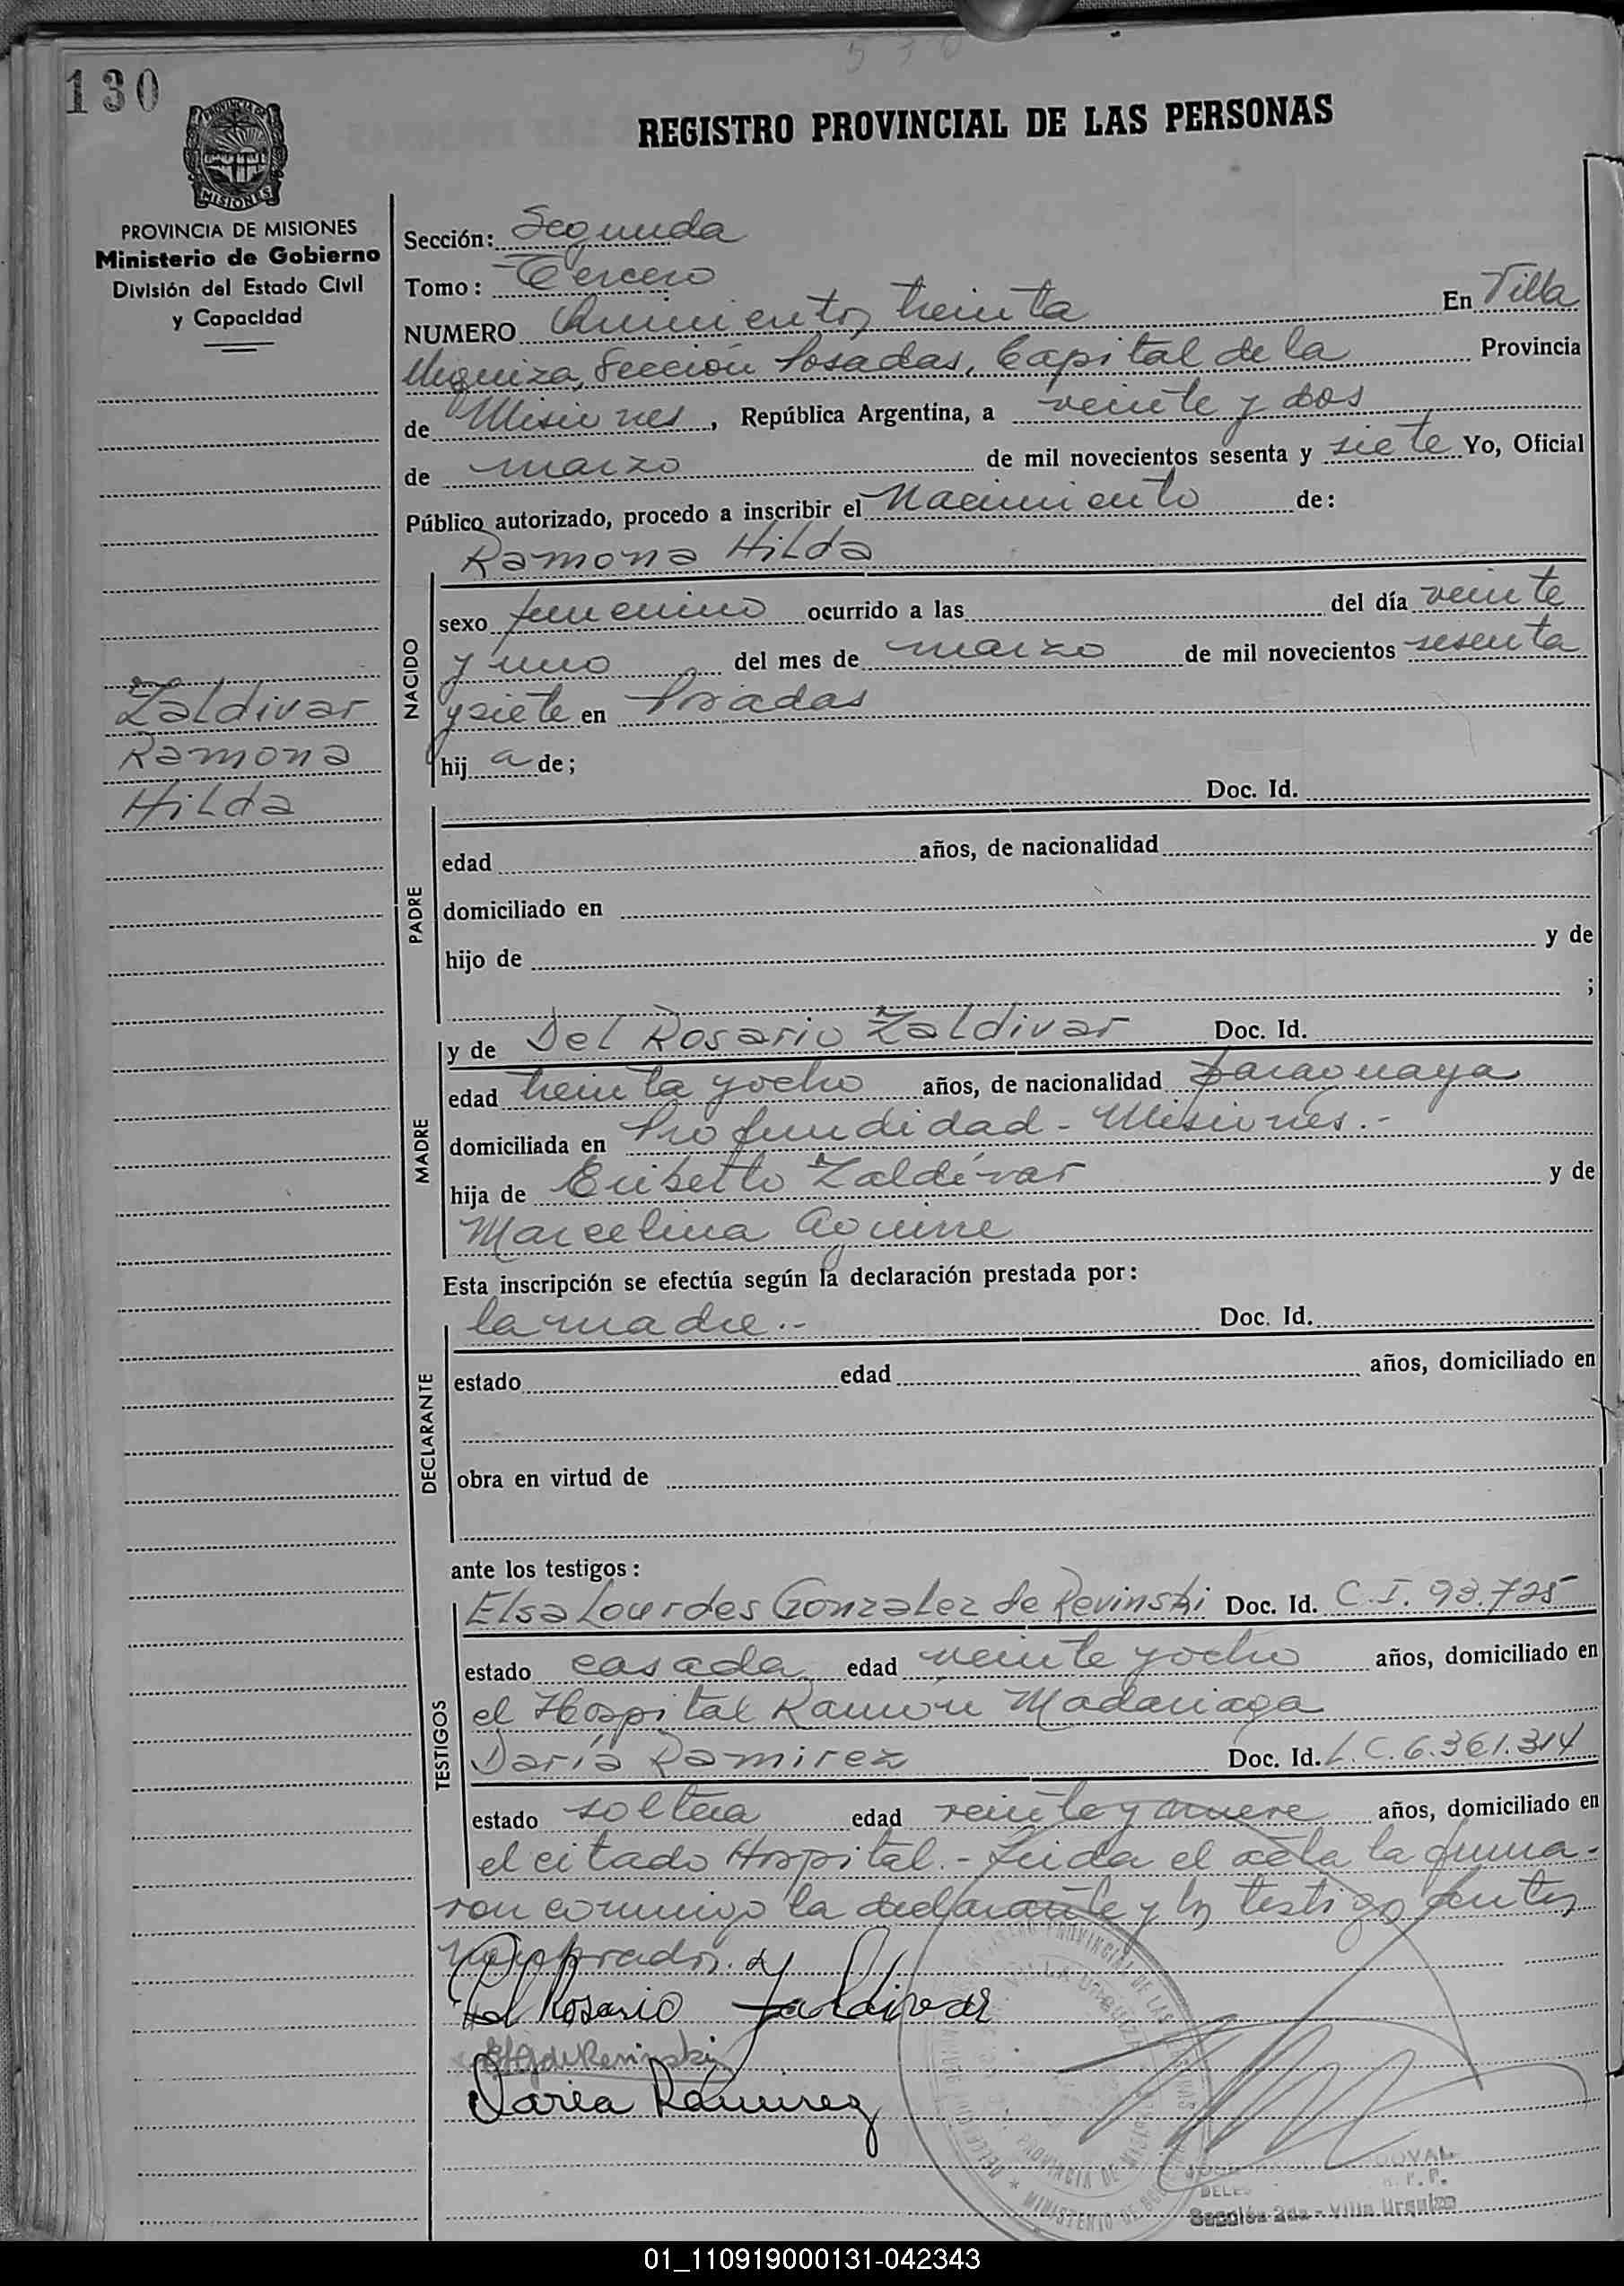 530
130
REGISTRO PROVINCIAL DE LAS PERSONAS
PROVINCIA DE MISIONES
Ministerio de Gobierno
División del Estado Civil
y Capacidad
Sección: Segunda
Tomo: Tercero
NUMERO Quinientos treinta En Villa
Urquiza, Sección Posadas, Capital de la Provincia
de Misiones, República Argentina, a veinte y dos
de marzo de mil novecientos sesenta y siete Yo, Oficial
Público autorizado, procedo a inscribir el Nacimiento de:
Ramona Hilda
NACIDO
sexo femenino ocurrido a las del día veinte
y uno del mes de marzo de mil novecientos sesenta
y siete en Posadas
hij a de;
Zaldivar
Ramona
Hilda
PADRE
Doc. Id.
edad años, de nacionalidad
domiciliado en
hijo de y de
;
MADRE
y de Del Rosario Zaldivar Doc. Id.
edad treinta y ocho años, de nacionalidad paraguaya
domiciliada en Profundidad - Misiones.-
hija de Eriberto Zaldívar y de
Marcelina Aguirre
Esta inscripción se efectúa según la declaración prestada por:
DECLARANTE
la madre.- Doc. Id.
estado edad años, domiciliado en
obra en virtud de
ante los testigos:
TESTIGOS
Elsa Lourdes Gonzalez de Revinski Doc. Id. C.I. 93.725
estado casada edad veinte y ocho años, domiciliado en
el Hospital Ramón Madariaga
Daría Ramirez Doc. Id. L.C. 6.361.314
estado soltera edad veinte y nueve años, domiciliado en
el citado Hospital.- Leida el acta la firma-
ron conmigo la declarante y los testigos antes
nombrados.
Del Rosario Zaldivar
Daria Ramirez
Sección 2da - Villa Urquiza
01_110919000131-042343